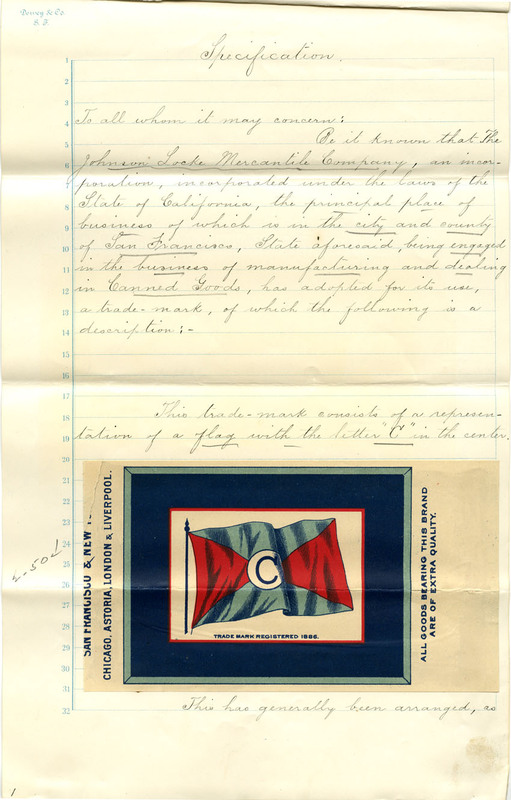 Dewey & Co.
S. F.
Specification.
1
2
3
4
To all whom it may concern:
5
Be it known that The
6
Johnson Locke Mercantile Company, an incor-
7
poration, incorporated under the laws of the
8
State of California, the principal place of
9
business of which is in the city and county
10
of San Francisco, State aforesaid, being engaged
11
in the business of manufacturing and dealing
12
in Canned Goods, has adopted for its use,
13
a trade-mark, of which the following is a
14
description:-
15
16
17
18
This trade-mark consists of a represen-
19
tation of a flag with the letter "C" in the center.
20
21
22
23
24
25
26
27
28
29
30
31
SAN FRANCISCO & NEW
CHICAGO, ASTORIA, LONDON & LIVERPOOL.
C
TRADE MARK REGISTERED 1886.
ALL GOODS BEARING THIS BRAND
ARE OF EXTRA QUALITY.
32
This has generally been arranged, as
1